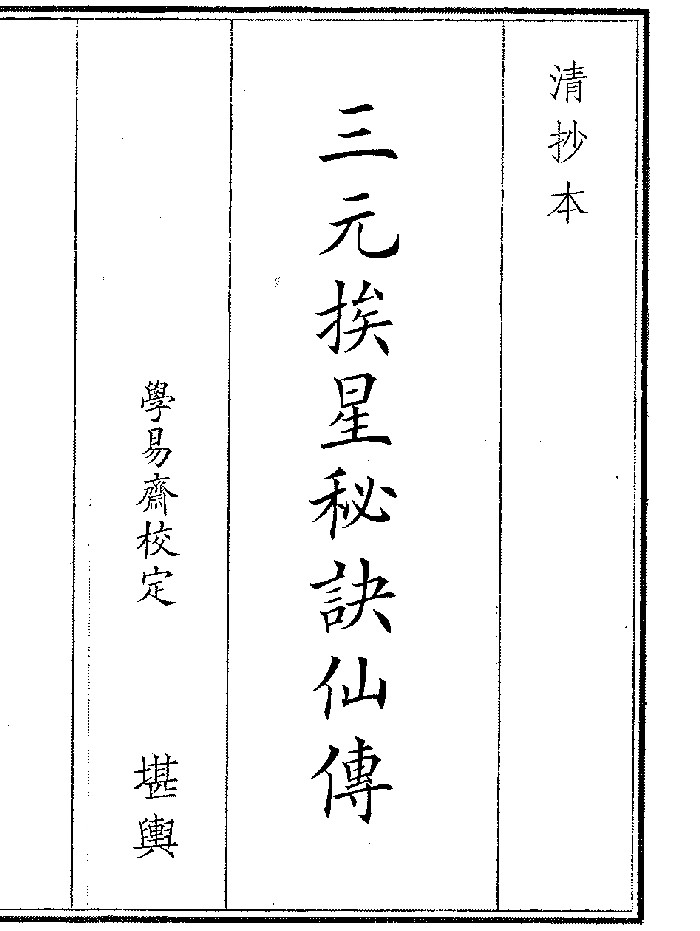 清抄本
三元挨星秘訣仙傳
學易齋校定
堪輿